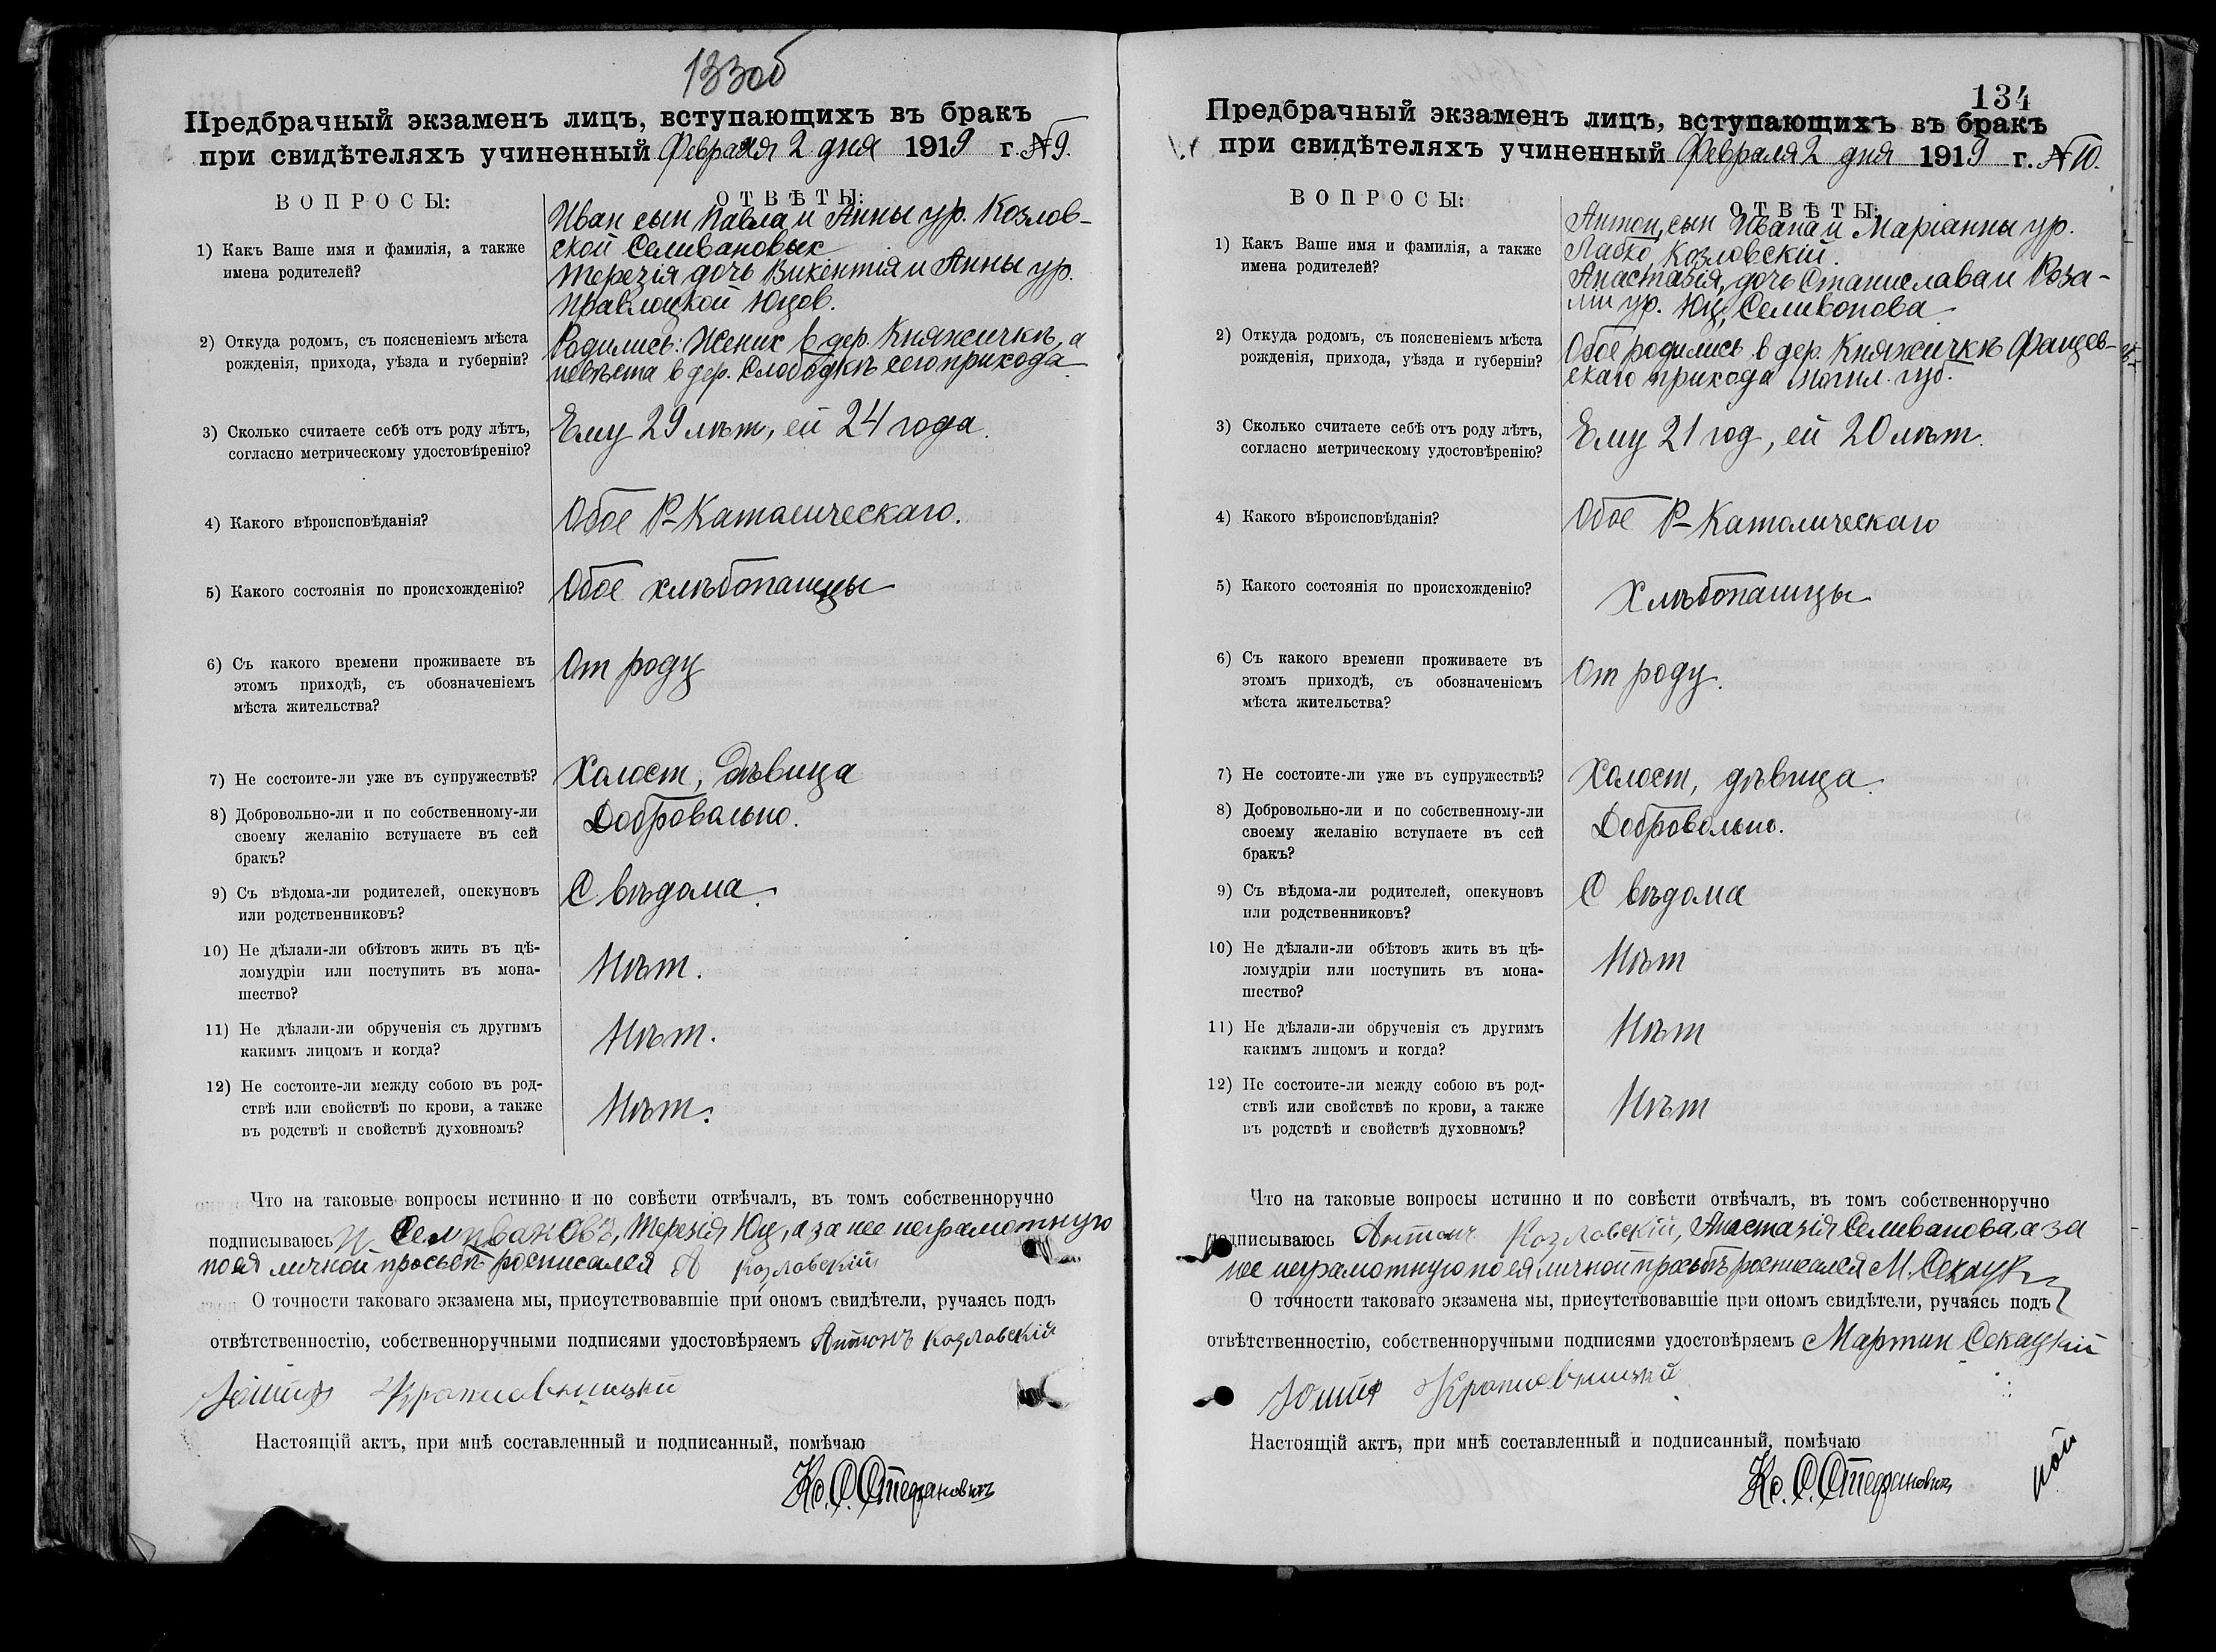 133об
Предбрачный экзаменъ лицъ, вступающихъ въ бракъ
при свидѣтеляхъ учиненный Февраля 2 дня 1919 г. №9.
ВОПРОСЫ:
ОТВѢТЫ:
1) Какъ Ваше имя и фамилія, а также
имена родителей?
Иван сын Павла и Анны ур. Козлов-
ской Селивановых
Терезія дочь Викентія и Анны ур.
Правлоцкой Юцов.
2) Откуда родомъ, съ поясненіемъ мѣста
рожденія, прихода, уѣзда и губерніи?
Родились: Жених в дер. Княжичкѣ, а
невѣста в дер. Слободкѣ сего прихода
3) Сколько считаете себѣ отъ роду лѣтъ,
согласно метрическому удостовѣренію?
Ему 29 лѣт, ей 24 года.
4) Какого вѣроисповѣданія?
Обое Р-Католическаго.
5) Какого состоянія по происхожденію?
Обое хлѣбопашцы
6) Съ какого времени проживаете въ
этомъ приходѣ, съ обозначеніемъ
мѣста жительства?
От роду
7) Не состоите-ли уже въ супружествѣ?
Холост, дѣвица
8) Добровольно-ли и по собственному-ли
своему желанію вступаете въ сей
бракъ?
Добровольно.
9) Съ вѣдома-ли родителей, опекуновъ
или родственниковъ?
С вѣдома.
10) Не дѣлали-ли обѣтовъ жить въ цѣ-
ломудріи или поступить въ мона-
шество?
Нѣт.
11) Не дѣлали-ли обрученія съ другимъ
какимъ лицомъ и когда?
Нѣт.
12) Не состоите-ли между собою въ род-
ствѣ или свойствѣ по крови, а также
въ родствѣ и свойствѣ духовномъ?
Нѣт.
Что на таковые вопросы истинно и по совѣсти отвѣчалъ, въ томъ собственноручно
подписываюсь И Селивановъ, Терезія Юц, а за нее неграмотную
по ея личной просьбѣ росписался А Козловскій
О точности таковаго экзамена мы, присутствовавшіе при ономъ свидѣтели, ручаясь подъ
отвѣтственностію, собственноручными подписями удостовѣряемъ Антонъ Козловскій
Настоящій актъ, при мнѣ составленный и подписанный, помѣчаю
Кс. С. Стефановичъ
134
Предбрачный экзаменъ лицъ, вступающихъ въ бракъ
при свидѣтеляхъ учиненный Февраля 2 дня 1919 г. №10.
ВОПРОСЫ:
ОТВѢТЫ:
1) Какъ Ваше имя и фамилія, а также
имена родителей?
Антон, сын Ивана и Маріанны ур.
Козловскій.
Анастазія, дочь Станислава и Роза-
ліи ур. Юц, Селивонова
2) Откуда родомъ, съ поясненіемъ мѣста
рожденія, прихода, уѣзда и губерніи?
Обое родились в дер. Княжичкѣ Фащев-
скаго прихода Могил. губ.
3) Сколько считаете себѣ отъ роду лѣтъ,
согласно метрическому удостовѣренію?
Ему 21 год, ей 20 лѣт.
4) Какого вѣроисповѣданія?
Обое Р-Католическаго
5) Какого состоянія по происхожденію?
Хлѣбопашцы
6) Съ какого времени проживаете въ
этомъ приходѣ, съ обозначеніемъ
мѣста жительства?
От роду.
7) Не состоите-ли уже въ супружествѣ?
Холост, дѣвица.
8) Добровольно-ли и по собственному-ли
своему желанію вступаете въ сей
бракъ?
Добровольно.
9) Съ вѣдома-ли родителей, опекуновъ
или родственниковъ?
С вѣдома
10) Не дѣлали-ли обѣтовъ жить въ цѣ-
ломудріи или поступить въ мона-
шество?
Нѣт
11) Не дѣлали-ли обрученія съ другимъ
какимъ лицомъ и когда?
Нѣт
12) Не состоите-ли между собою въ род-
ствѣ или свойствѣ по крови, а также
въ родствѣ и свойствѣ духовномъ?
Нѣт
Что на таковые вопросы истинно и по совѣсти отвѣчалъ, въ томъ собственноручно
подписываюсь Антонъ Козловскій, Анастазія Селиванова, а за
нее неграмотную по ея личной просьбѣ росписался М.
О точности таковаго экзамена мы, присутствовавшіе при ономъ свидѣтели, ручаясь подъ
отвѣтственностію, собственноручными подписями удостовѣряемъ Мартин Секацкій
Настоящій актъ, при мнѣ составленный и подписанный, помѣчаю
Кс. С. Стефанович